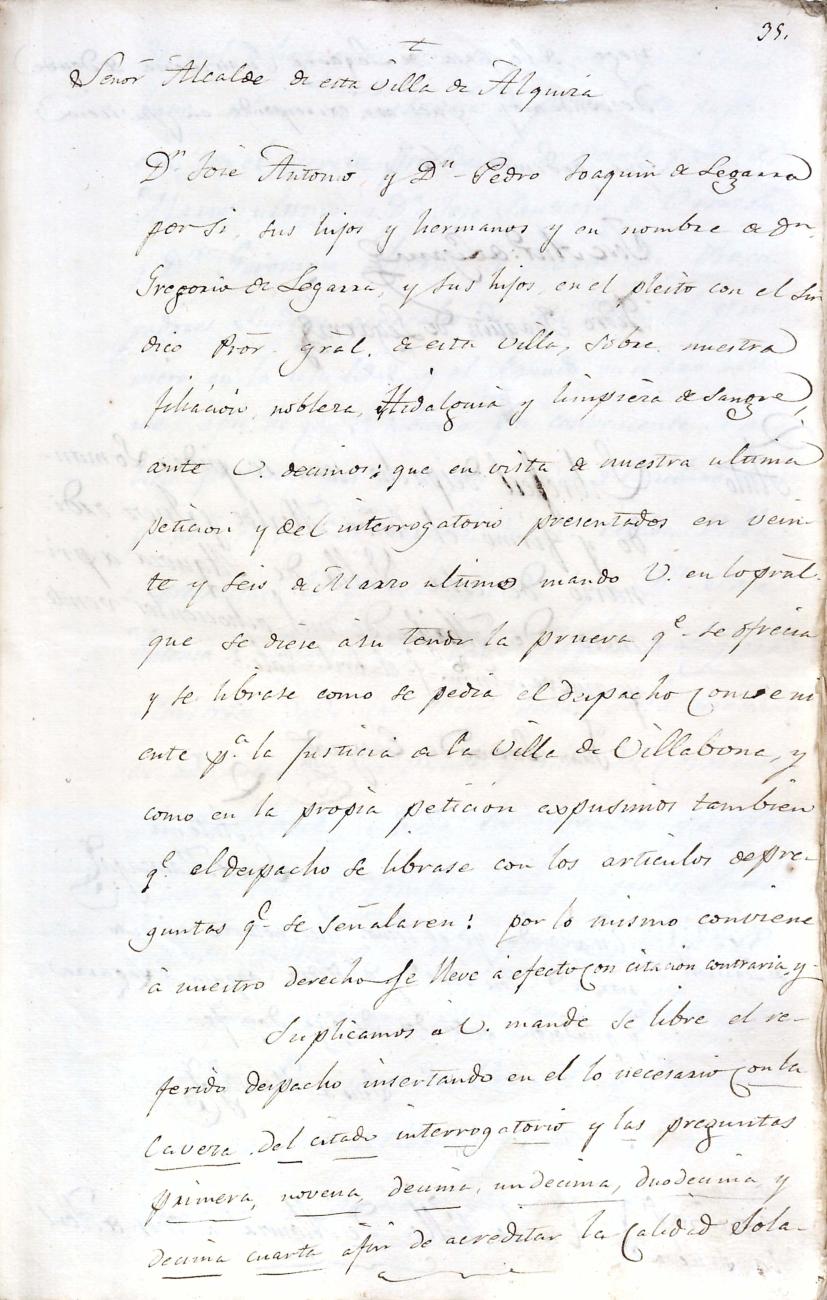 35.
Señor Alcalde de esta Villa de Alquiza
Dn José Antonio, y Dn Pedro Joaquin de Legarra
por si, sus hijos y hermanos y en nombre de Dn
Gregorio de Legarra, y sus hijos, en el pleito con el Sin
dico Pror gral. de esta Villa, sobre nuestra
filiación, nobleza, Hidalguia y limpieza de Sangre,
ante V. decimos: que en vista de nuestra ultima
peticion y del interrogatorio presentados en vein-
te y seis de Marzo ultimo mando V. en lo pral.
que se diese á su tenor la prueva qe. se ofrecia
y se librase como se pedia el despacho conveni
ente pa. la Justicia de la Villa de Villabona, y
como en la propia peticion expusimos tambien
qe. el despacho se librase con los articulos de pre-
guntas qe. se señalaren: por lo mismo conviene
à nuestro derecho se lleve á efecto con citacion contraria, y-
Suplicamos à V. mande se libre el re-
ferido despacho insertando en el lo necesario con la
Cavera del citado interrogatorio y las preguntas
primera, novena, decima, undecima, duodecima y
decima cuarta áfin de acreditar la Calidad Sola-